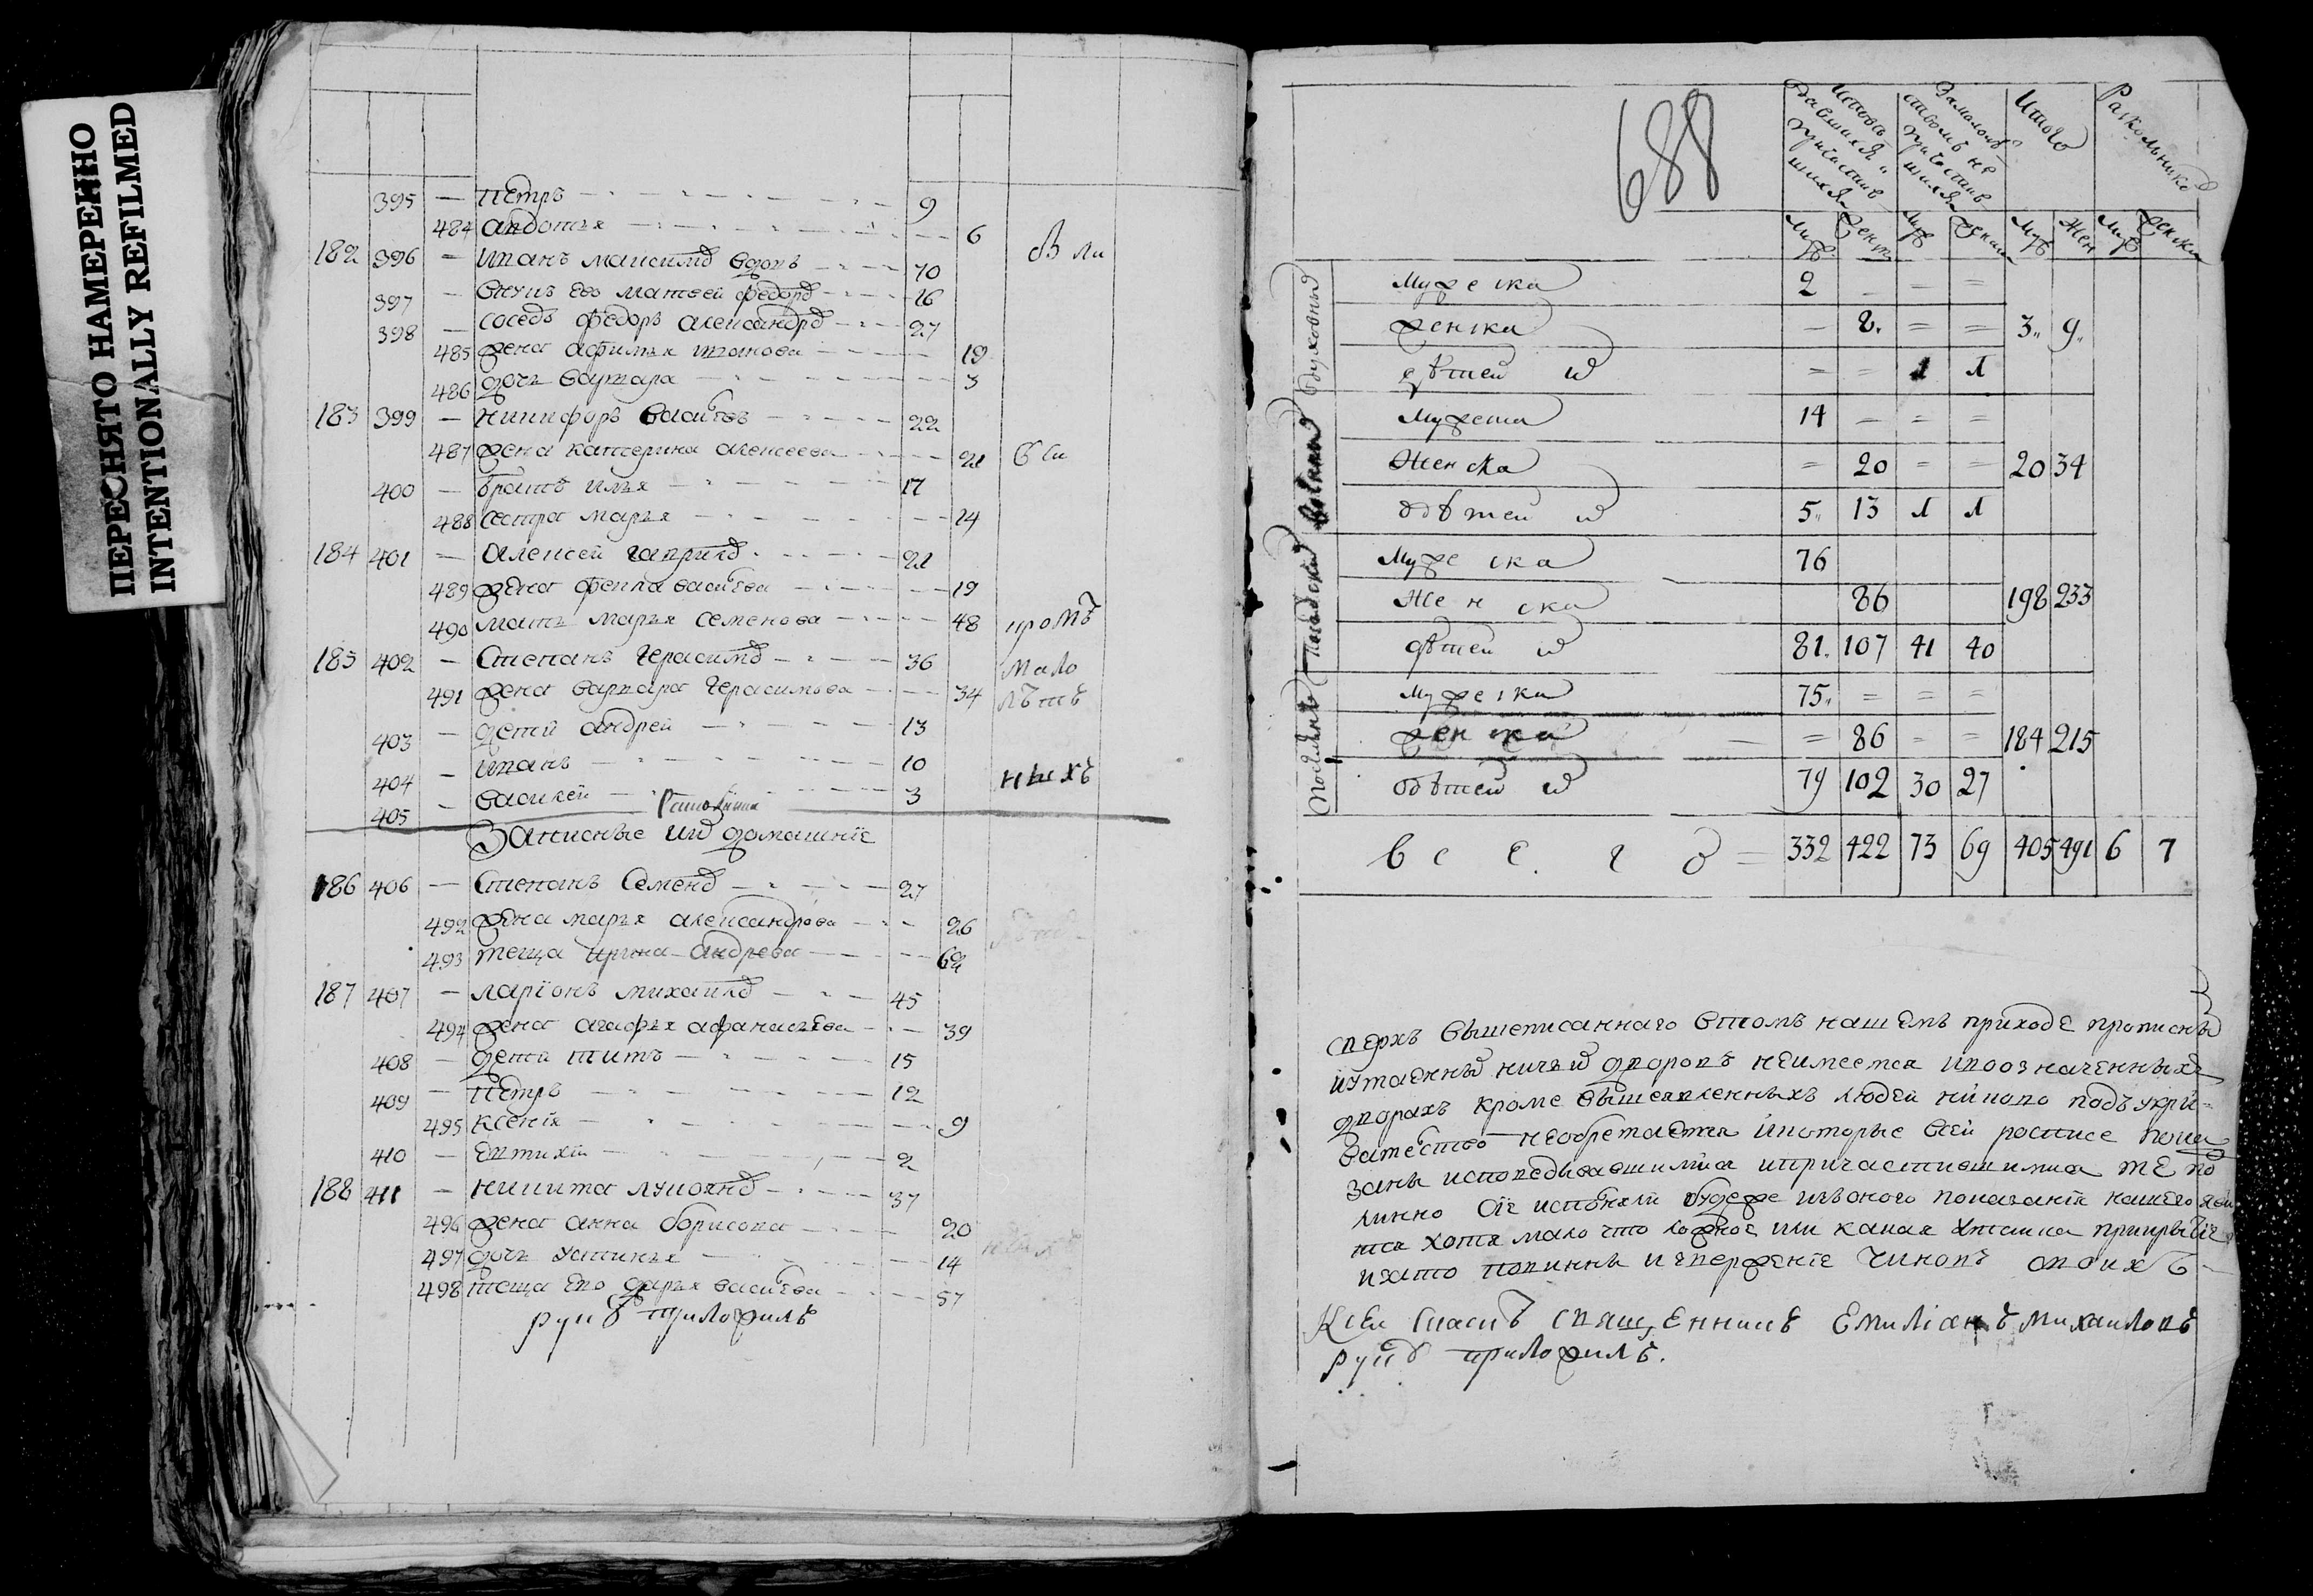 ПЕРЕСНЯТО НАМЕРЕННО
INTENTIONALLY REFILMED
395 — Петръ — 9
484 авдотья — 6
182 396 — Иванъ маѯимовъ вдовъ — 70
397 — внукъ его матвей федоровъ — 16
398 — соседъ федоръ алеѯандровъ — 27
485 жена афимья — 19
486 дочь — 3
183 399 — никифоръ василевъ — 22
487 жена катерина алексеева — 21
400 — братъ илья — 17
488 сестра марья — 14
184 401 — алексей гавриловъ — 21
489 жена фекла василева — 19
490 мать марья семенова — 48
185 402 — Степанъ Герасимовъ — 36
491 жена варвара Герасимова — 34
403 — дети андрей — 13
404 — иванъ — 10
405 — василей — 3
Записные и домашние
186 406 — Степанъ Семеновъ — 27
492 жена марья александрова — 26
493 теща ирина андрева — 62
187 407 — ларионъ михаиловъ — 45
494 жена агафья афанасьева — 39
408 — дети титъ — 15
409 — Петръ — 12
495 ксения — 9
410 — евтихий — 2
188 411 — никита лукояновъ — 37
496 жена анна борисова — 20
497 дочь устинья — 14
498 теща ево дарья василева — 57
руку приложилъ
въ ли
мало
лѣтъ
ныхъ
688
Итого
Раскольниковъ
Муж Женск Муж Женск Муж Жен Муж Женска
Духовныхъ
Мужеска 2 — = =
женска — 8. = = 3,, 9,,
дѣтей = = 1 1
Мужеска 14 — = =
Женска = 20 = = 20 34
дѣтей 5,, 13 1 1
Мужеска 76
Женска 86 198 233
дѣтей 81. 107 41 40
Мужеска 75,, = = =
женска = 86 = = 184 215
дѣтей 79 102 30 27
всего = 332 422 73 69 405 491 6 7
сверхъ вышеписаннаго втомъ нашемъ приходе прописныхъ
иутаенныхъ ничьихъ дворовъ неимеется ивоозначенныхъ
дворахъ кроме вышеявленныхъ людей никого подъукри-
вательство необретается икоторые всей росписе пока
заны исповедывавшимися ипричастившимися те по
линно
хотя мало что ложное или какая утаика
изато повинны извержение чиновъ своихъ
Ксей священникъ Емилианъ михаиловъ
руку приложилъ.